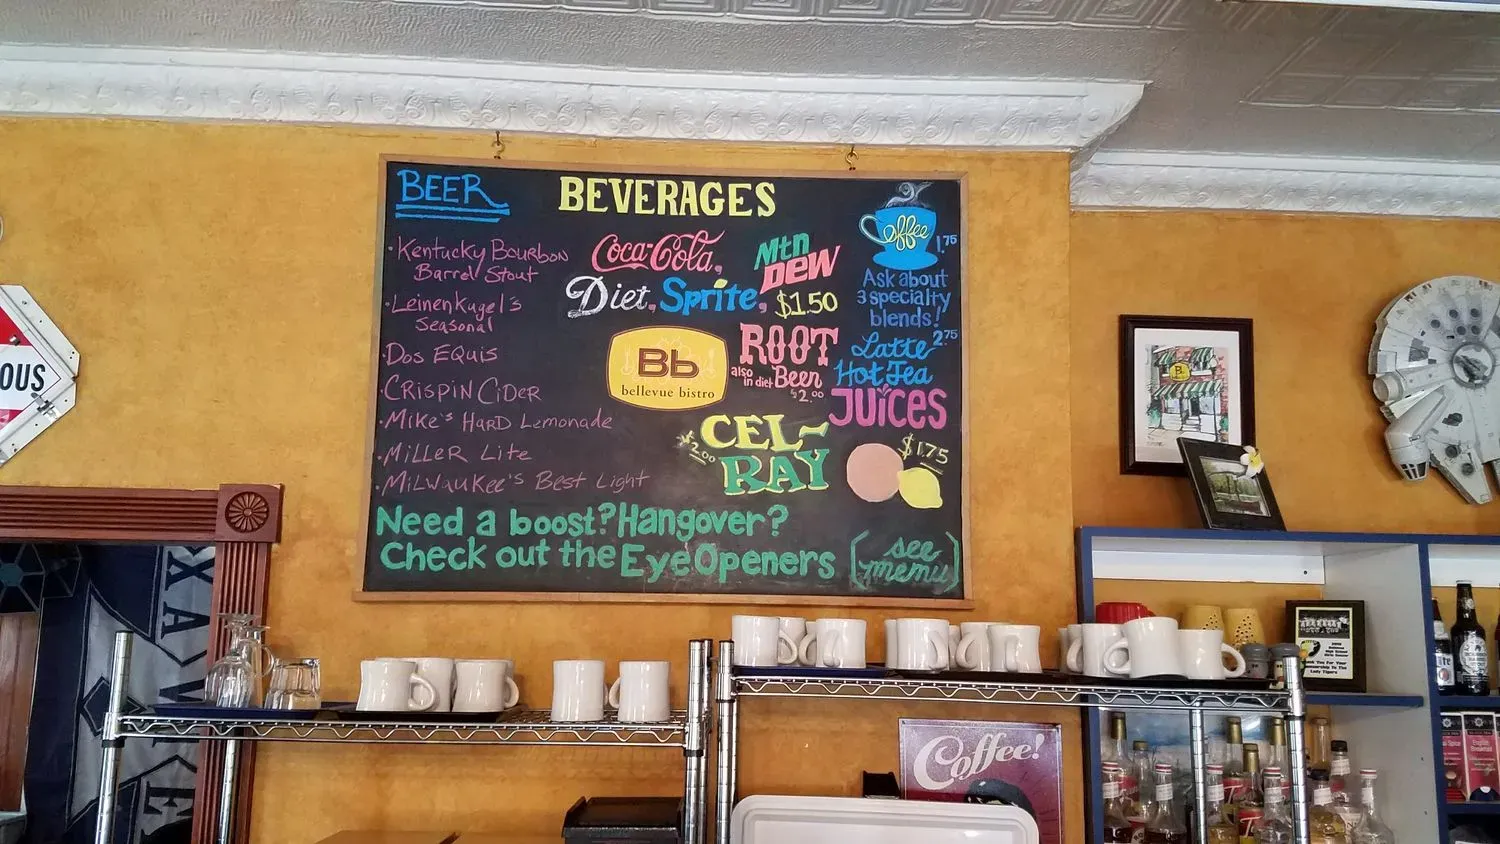 BEER
· Kentucky Bourbon
Barrel Stout
· Leinenkugel's
Seasonal
· Dos Equis
· Crispin Cider
· Mike's Hard Lemonade
· Miller Lite
· Milwaukee's Best Light
BEVERAGES
Coca-Cola,
Mtn
DEW
Diet, Sprite, $1.50
Bb
bellevue bistro
ROOT
also
in diet Beer
$2.00
CEL-
RAY
$2.00
Coffee
1.75
Ask about
3 specialty
blends!
Latte 2.75
Hot Tea
JUICES
$1.75
Need a boost? Hangover?
Check out the Eye Openers
[see
menu]
OUS
XAV
Coffee!
English
Breakfast